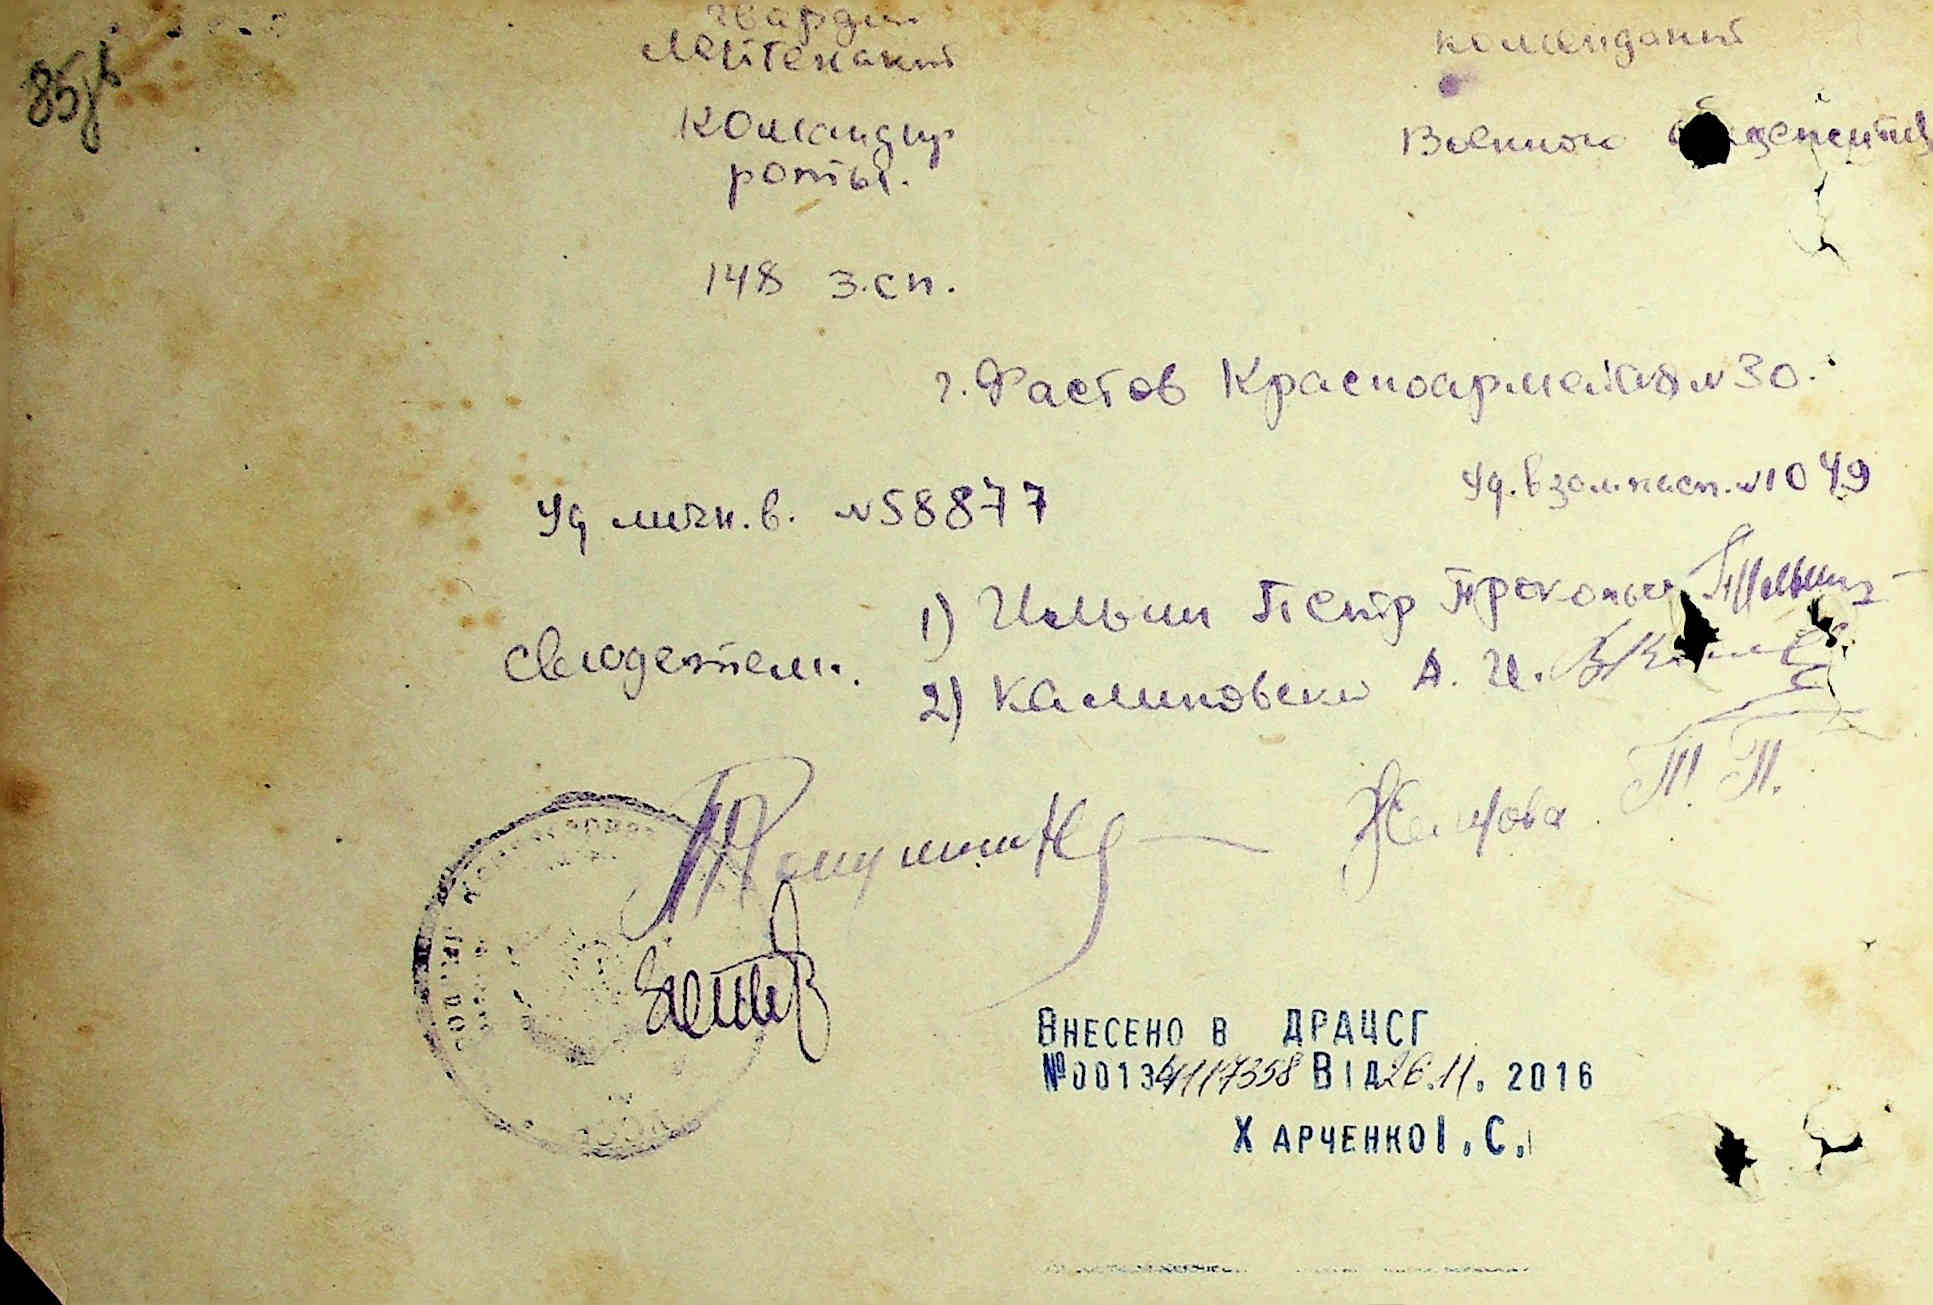 85
гвардии
лейтенант
командир
роты.
148 з.сп.
комендант
Военного
г. Фастов Красноармейская № 30.
Уд личн. в. № 58877
Уд. взам. пасп. № 1049
свидетели.
1) Ильин Петр Прокопьев
2) Калиновски А. И.
Т. П.
ВНЕСЕНО В ДРАЦСГ
№00134117358 ВІД 26.11. 2016
ХАРЧЕНКО І. С.